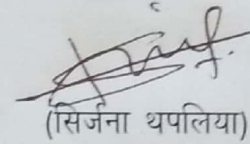 (सिर्जना थपलिया)